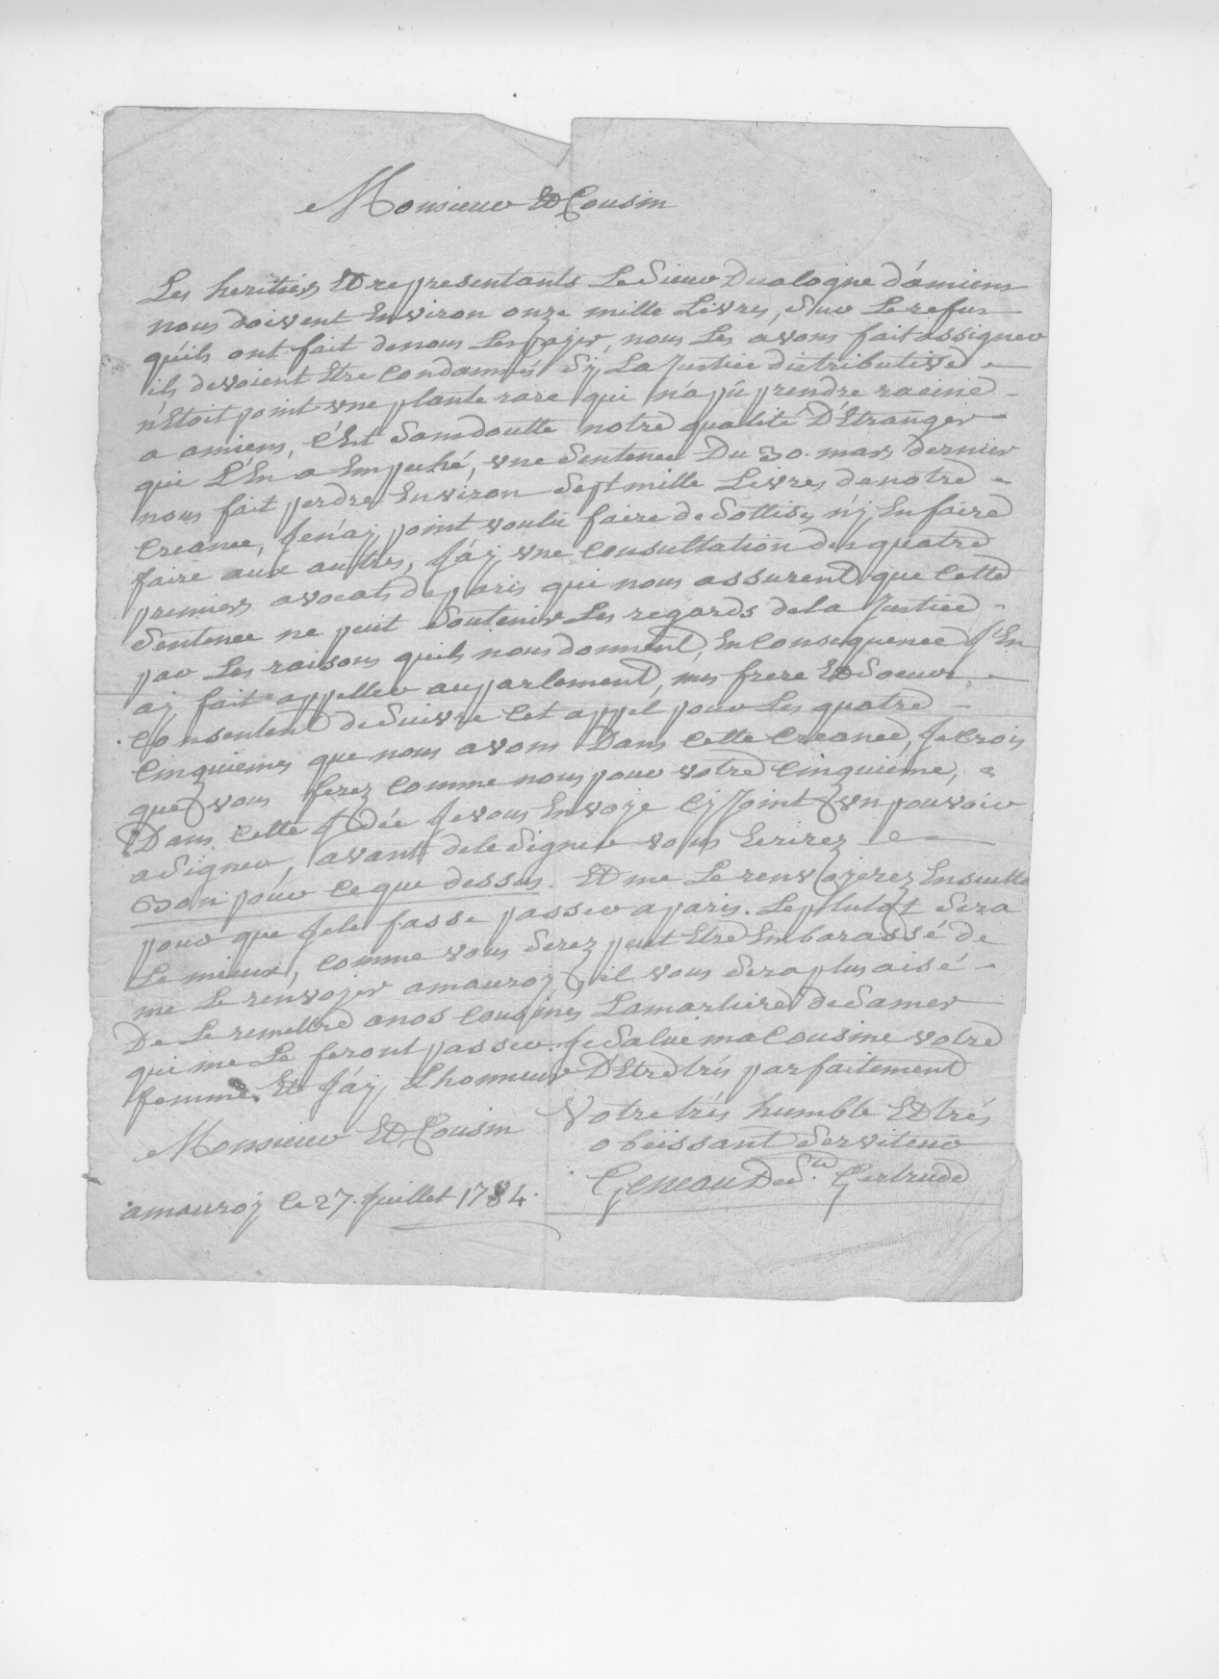 Monsieur Et Cousin
Les heritiers Et representants Le Sieur Dualogne d'amiens
nous doivent Environ onze mille Livres, Sur Le refus
quils ont fait de nous Les payer, nous Les avons fait assigner
ils devoient Etre Condamnés Sy La Justice distributive
n'Etoit point vne plante rare qui n'a pû prendre racine
a amiens, C'Est Sans doutte notre qualité D'Etranger
qui L'En a Empeché, vne Sentence Du 30. mars dernier
nous fait perdre Environ Sept mille Livres de notre
Creance, Je n'ay point voulu faire de Sottises n'y En faire
faire aux autres, J'ay vne Consultation des quatre
premiers avocats de paris qui nous assurent que Cette
Sentence ne peut Soutenir Les regards de la Justice
par Les raisons quils nous donnent, En Consequence J'En
ay fait appeller au parlement, mes frere Et Soeurs
Consentent de Suivre Cet appel pour Les quatre
Cinquiemes que nous avons Dans Cette Creance, Je Crois
que vous ferez Comme nous pour votre Cinquieme,
Dans Cette Idée Je vous Envoye Cy Joint vn pouvoir
a Signer, avant de le Signer vous Ecrirez
Bon pour Ce que dessus. Et me Le renvoyerez Ensuitte
pour que Je le fasse passer a paris. Le plutot Sera
Le mieux, Comme vous Serez peut Etre Embarassé de
me Le renvoyer amauroy, il vous Sera plus aisé
De Le remettre a nos Cousines Lamarliere de Samer
qui me Le feront passer. Je Salue ma Cousine votre
femme. Et J'ay L'honneur D'Etre trés parfaitement
Monsieur Et Cousin
Votre trés humble Et trés
obeissant Serviteur
Geneau De Ste. Gertrude
amauroy Ce 27. Juillet 1784.